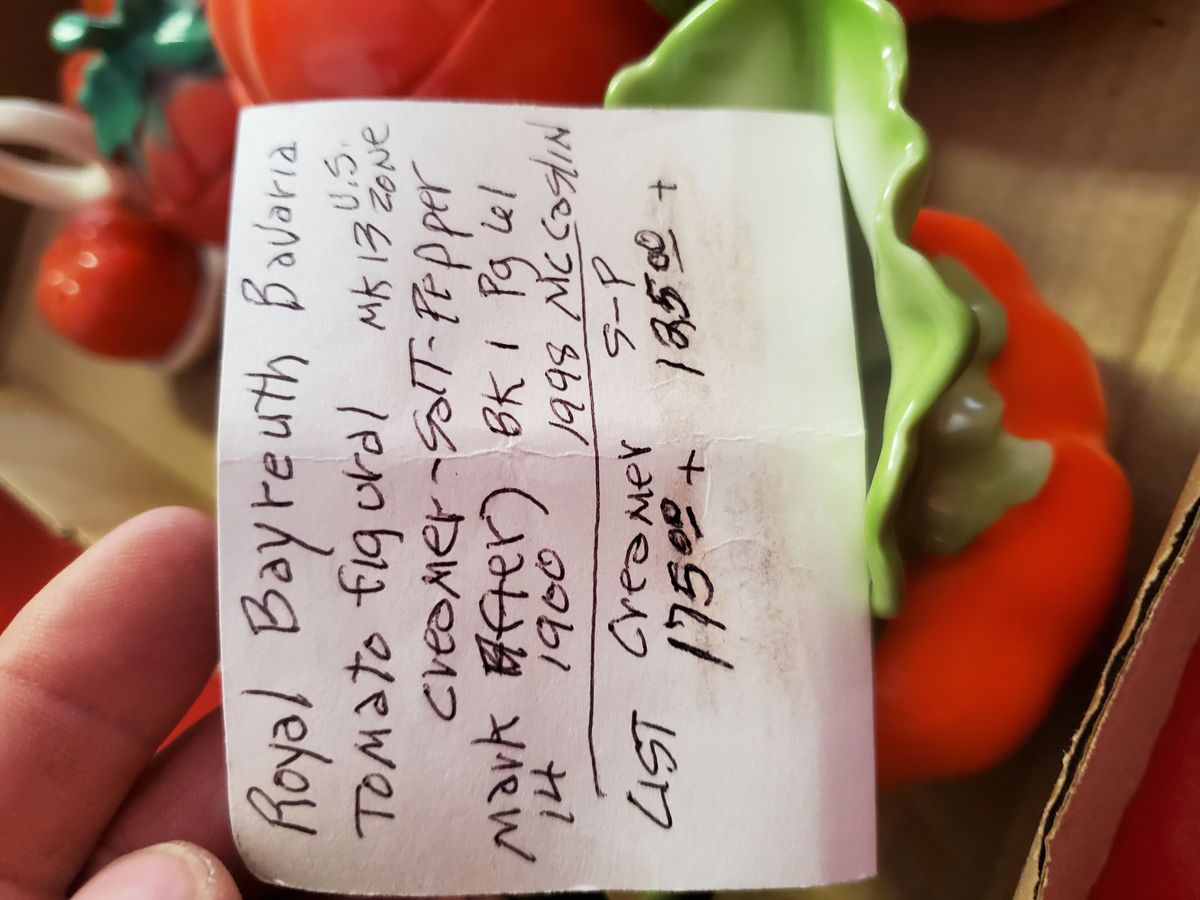 Royal Bayreuth Bavaria
Tomato figural MK13 U.S. ZONE
Creamer-Salt-Pepper
Mark After) BK 1 Pg 61
14 1900 1998 McCaslin
LIST Creamer S-P
175 00 + 125 00 +